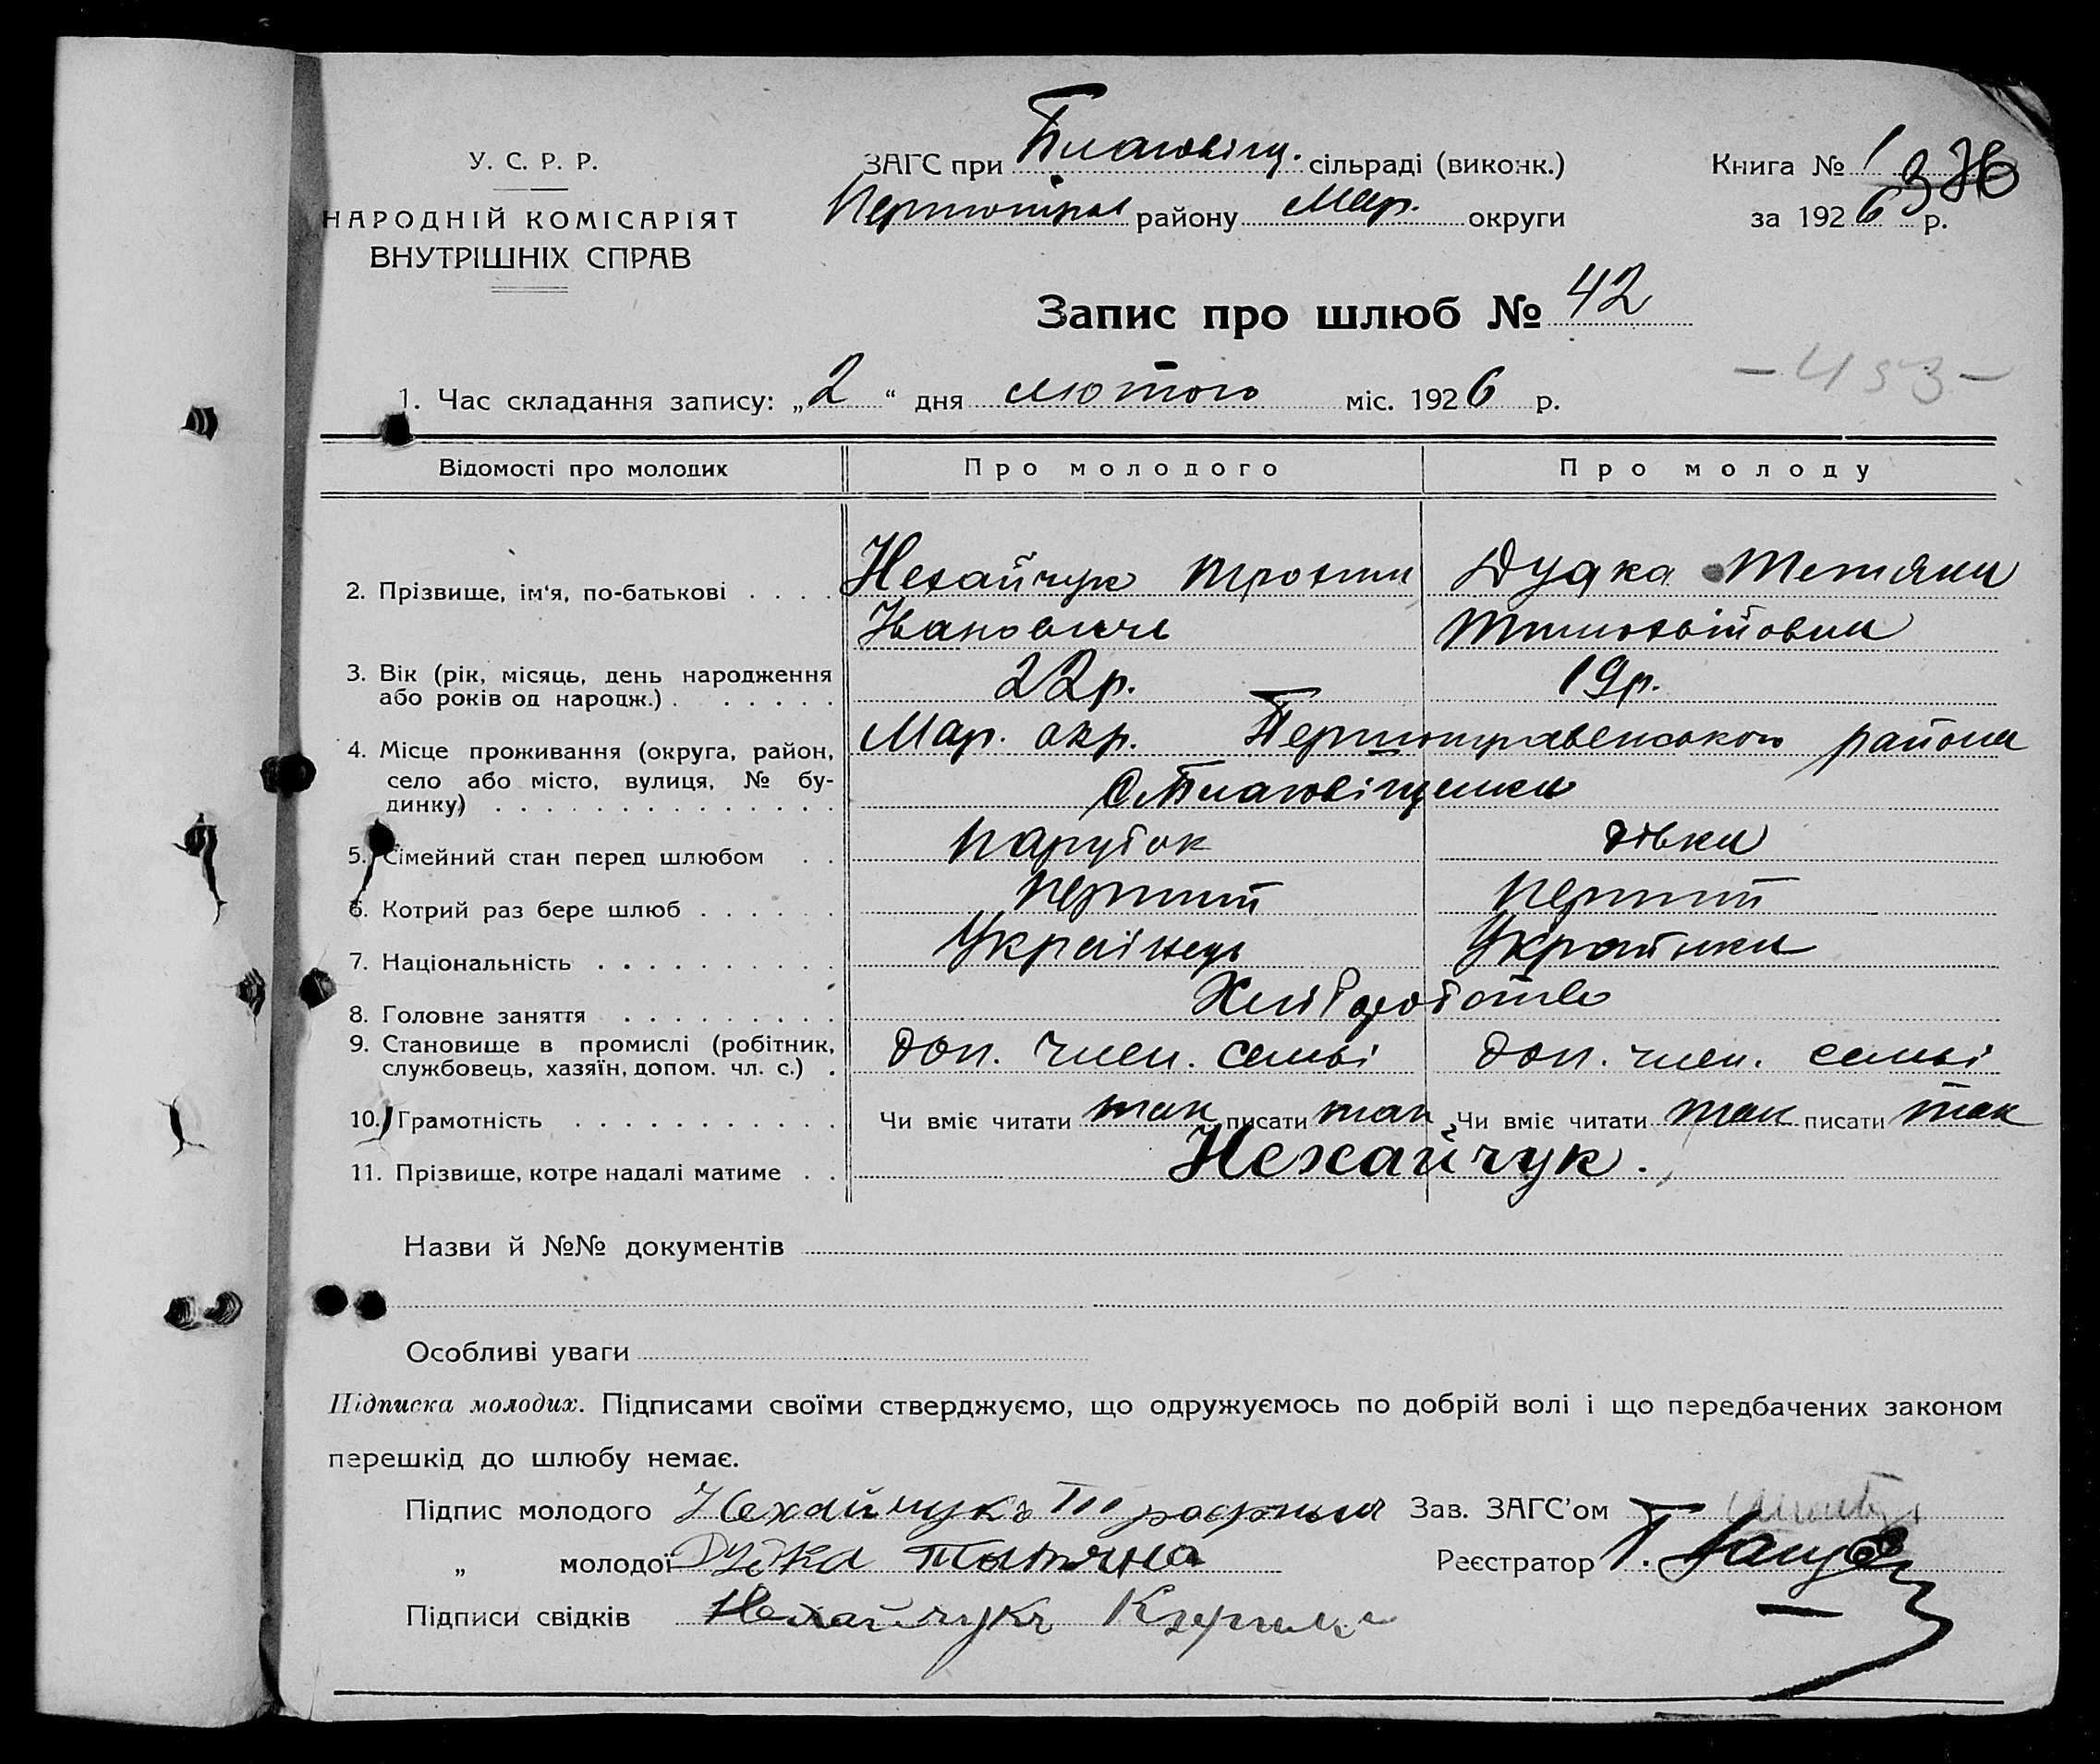 У. С. Р. Р.
НАРОДНІЙ КОМІСАРІЯТ
ВНУТРІШНІХ СПРАВ
ЗАГС при Благовіщ. сільраді (виконк.)
району Мар. округи
Книга № 1
376
за 1926 р.
Запис про шлюб № 42
- 453 -
1. Час складання запису: „2“ дня лютого міс. 1926 р.
Відомості про молодих Про молодого Про молоду
2. Прізвище, ім‘я, по-батькові . . . . Нехайчук Трохим Дудка Тетяна
Іванович Тимофіївна
3. Вік (рік, місяць, день народження
або років од народж.) . . . . . . 22р. 19р.
4. Місце проживання (округа, район, Мар. окр. Першотравенського района
село або місто, вулиця, № бу-
динку) . . . . . . . . . . . . . . с. Благовіщенка
5. Сімейний стан перед шлюбом . . парубок дівка
6. Котрий раз бере шлюб . . . . . . перший перший
7. Національність . . . . . . . . . . Українець Українка
8. Головне заняття . . . . . . . . . Хліборобство
9. Становище в промислі (робітник,
службовець, хазяїн, допом. чл. с.) . доп. член. семьі доп. член. семьі
10. Грамотність . . . . . . . . . . . . Чи вміє читати так писати так Чи вміє читати так писати так
11. Прізвище, котре надалі матиме . . Нехайчук.
Назви й №№ документів
Особливі уваги
Підписка молодих. Підписами своїми стверджуємо, що одружуємось по добрій волі і що передбачених законом
перешкід до шлюбу немає.
Підпис молодого Нехайчукъ Трофим Зав. ЗАГС’ом
„ молодої Дудка Тытяна Реєстратор
Підписи свідків Нехайчукъ